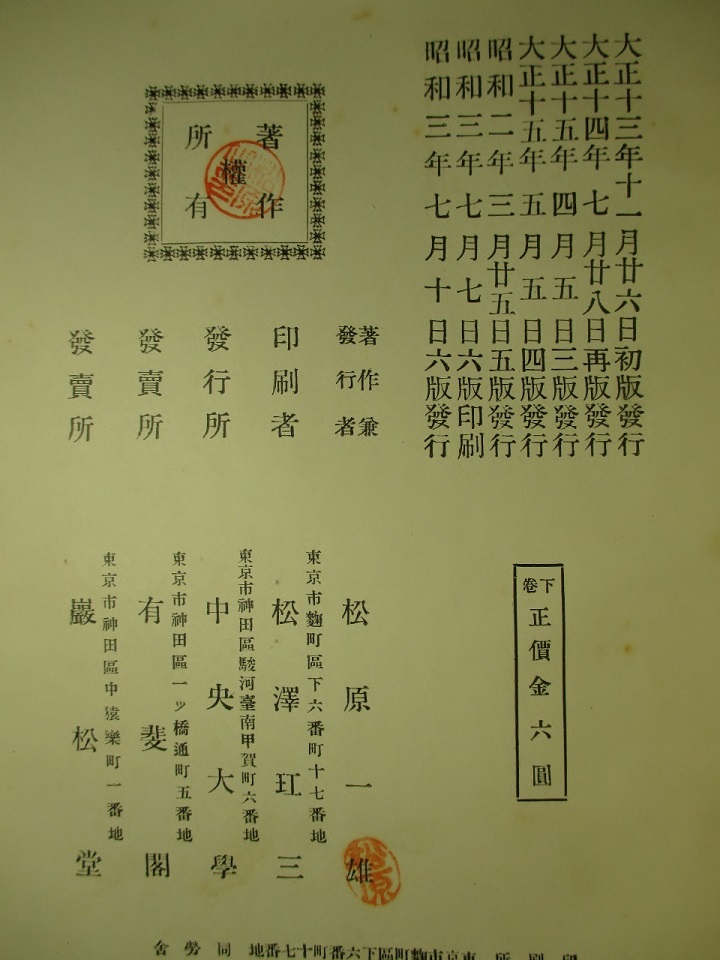 大正十三年十一月廿六日初版發行
大正十四年七月廿八日再版發行
大正十五年四月五日三版發行
大正十五年五月五日四版發行
昭和二年三月廿五日五版發行
昭和三年七月七日六版印刷
昭和三年七月十日六版發行
下卷 正價金六圓
著作
權
所有
著作兼
發行者
松原一雄
東京市麴町區下六番町十七番地
印刷者
松澤玒三
東京市神田區駿河臺南甲賀町六番地
發行所
中央大學
東京市神田區一ツ橋通町五番地
發賣所
有斐閣
東京市神田區中猿樂町一番地
發賣所
巖松堂
印刷所 東京市麴町區下六番町十七番地 同勞舍